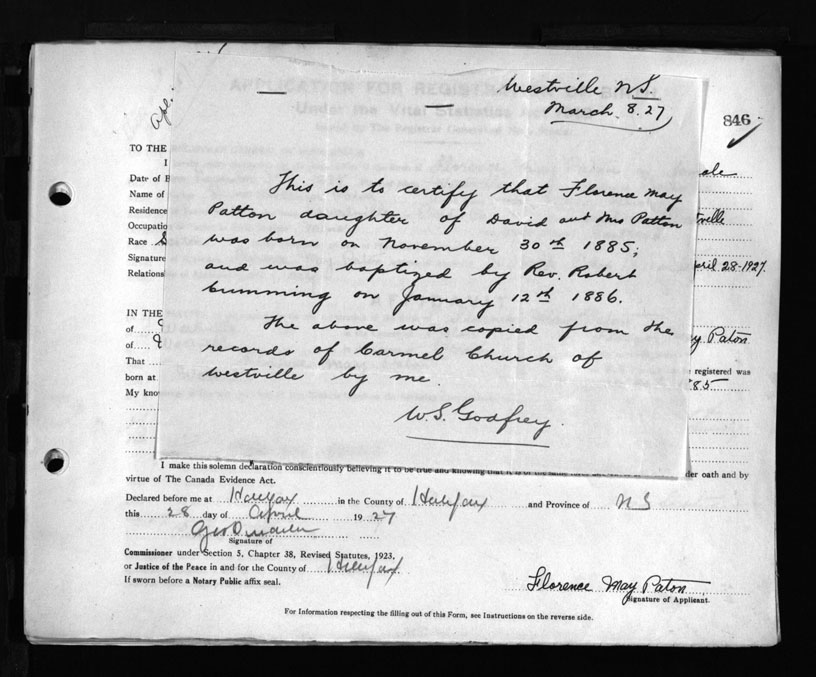 Westville N.S.
March. 8. 27
846
APPLICATION FOR
Under the Vital Statistics
TO THE
I
ale
Date of B
Name of
Residence
Occupatio
Race
Signature
April 28-1927.
Relations
This is to certify that Florence May
Patton daughter of David and Mrs Patton
was born on November 30th 1885;
and was baptized by Rev. Robert
Cumming on January 12th 1886.
The above was copied from the
records of Carmel Church of
Westville by me.
W.S. Godfrey.
IN THE
of
of
y Paton
That
registered was
born at
85
My know
I make this solemn declaration conscientiously believing it to be true and knowing that it is of the same der oath and by
virtue of The Canada Evidence Act.
Declared before me at Halifax in the County of Halifax and Province of N S
this 28 day of April 1927
Signature of
Commissioner under Section 5, Chapter 38, Revised Statutes, 1923.
or Justice of the Peace in and for the County of Halifax
If sworn before a Notary Public affix seal.
Florence May Paton
Signature of Applicant.
For Information respecting the filling out of this Form, see Instructions on the reverse side.